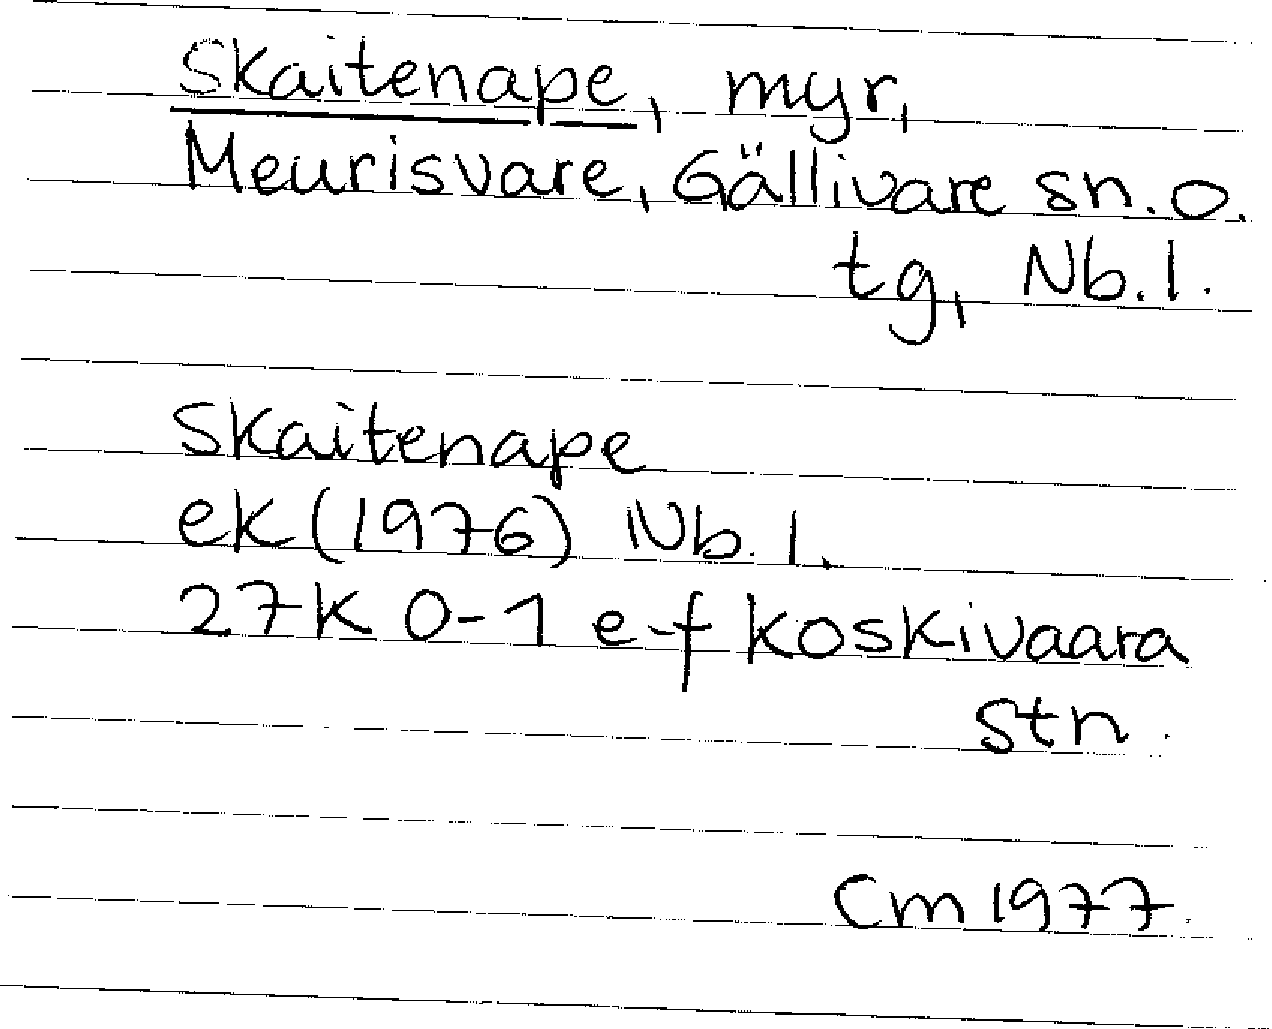 Skaitenape, myr,
Meurisvare, Gällivare sn. o.
tg, Nb. l.
Skaitenape
ek (1976) Nb. l.
27K 0-1 e-f Koskivaara
stn.
Cm 1977.